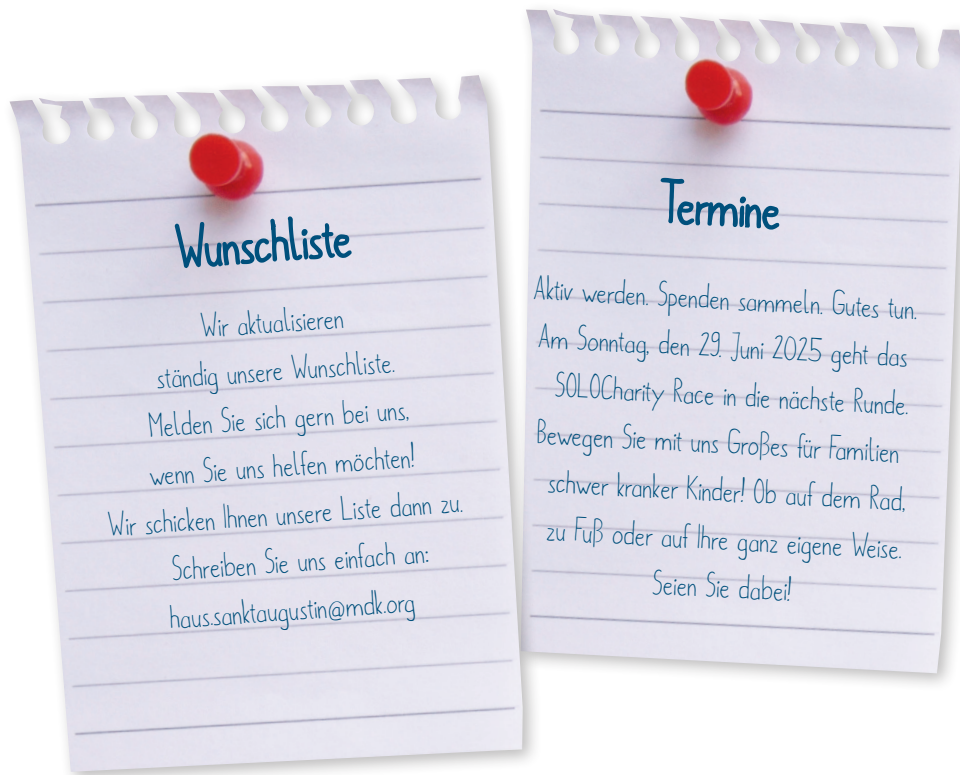 Wunschliste
Wir aktualisieren
ständig unsere Wunschliste.
Melden Sie sich gern bei uns,
wenn Sie uns helfen möchten!
Wir schicken Ihnen unsere Liste dann zu.
Schreiben Sie uns einfach an:
haus.sanktaugustin@mdk.org
Termine
Aktiv werden. Spenden sammeln. Gutes tun.
Am Sonntag, den 29. Juni 2025 geht das
SOLOCharity Race in die nächste Runde.
Bewegen Sie mit uns Großes für Familien
schwer kranker Kinder! Ob auf dem Rad,
zu Fuß oder auf Ihre ganz eigene Weise.
Seien Sie dabei!